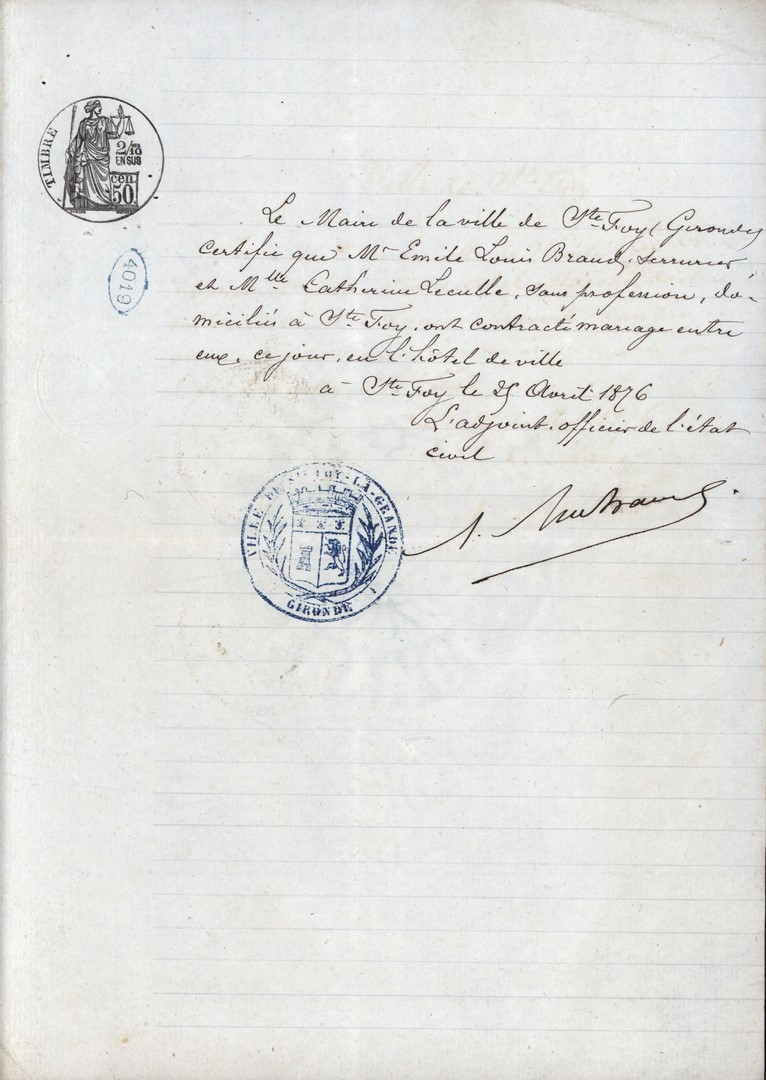 TIMBRE
2/10
EN SUS
cen.
50.
4019
Le Maire de la ville de Ste Foy (Gironde)
certifie que Mr Emile Louis Braud, serrurier
et Mlle Catherine Leculle, sans profession, do-
miciliés à Ste Foy, ont contracté mariage entre
eux, ce jour, en l'hôtel de ville
à Ste Foy le 25 Avril 1876
L'adjoint officier de l'état
civil
VILLE DE STE FOY-LA-GRANDE
GIRONDE